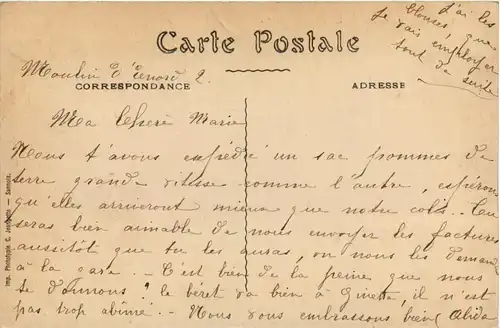 J'ai les
blouses que
je vais employer
tout de suite
Carte Postale
Moulin d'Enard 2
CORRESPONDANCE
ADRESSE
Ma Chère Marie
Nous t'avons expédié un sac pommes de
terre grande vitesse comme l'autre, espérons
qu'elles arriveront mieux que notre colis. Tu
seras bien aimable de nous envoyer les factures
aussitôt que tu les auras, on nous les demande
à la gare. - C'est bien de la peine que nous
te donnons. le béret va bien à Ginette, il n'est
pas trop abîmé. - Nous vous embrassons bien Alida
Imp. Phototypie C. - Samois.